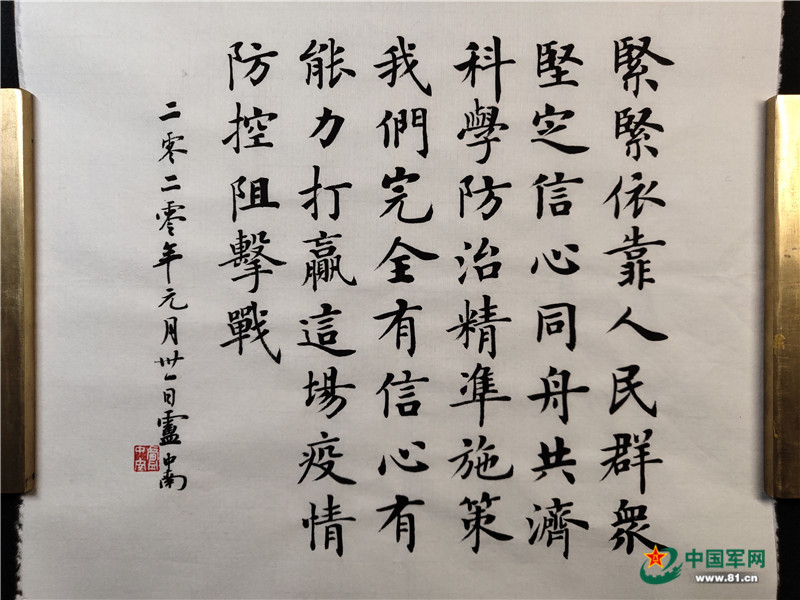 緊緊依靠人民群衆
堅定信心同舟共濟
科學防治精準施策
我們完全有信心有
能力打贏這場疫情
防控阻擊戰
二零二零年元月卅一日盧中南
中国军网
www.81.cn